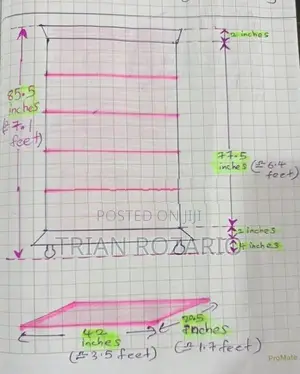 2 inches
85.5
inches
(≏7.1
feet)
77.5
inches (≏6.4
feet)
POSTED ON JIJI
TRIAN ROZARIO
2 inches
4 inches
42
inches
(≏3.5 feet)
inches
(≏1.7 feet)
ProMate